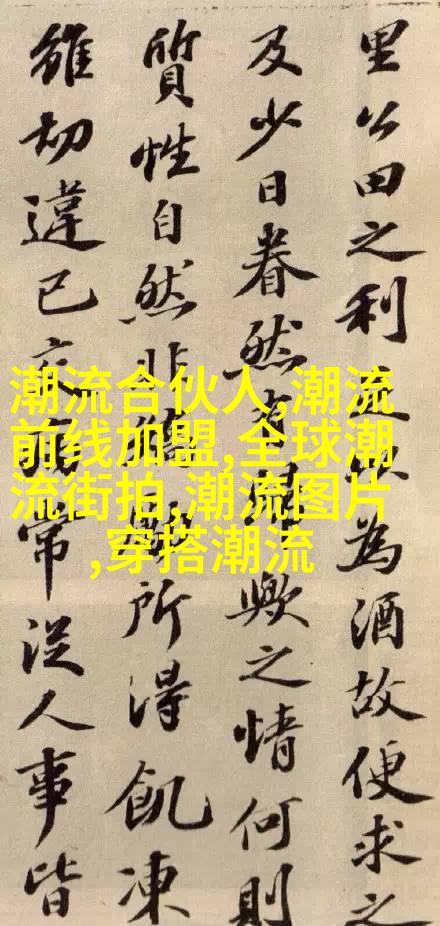 里公田之利以為酒故便求之
及少日眷然有歟之情何則
質性自然非所得飢凍
雖切違己交常從人事皆
潮流合伙人,潮流
前线加盟,全球潮
流街拍,潮流图片
,穿搭潮流